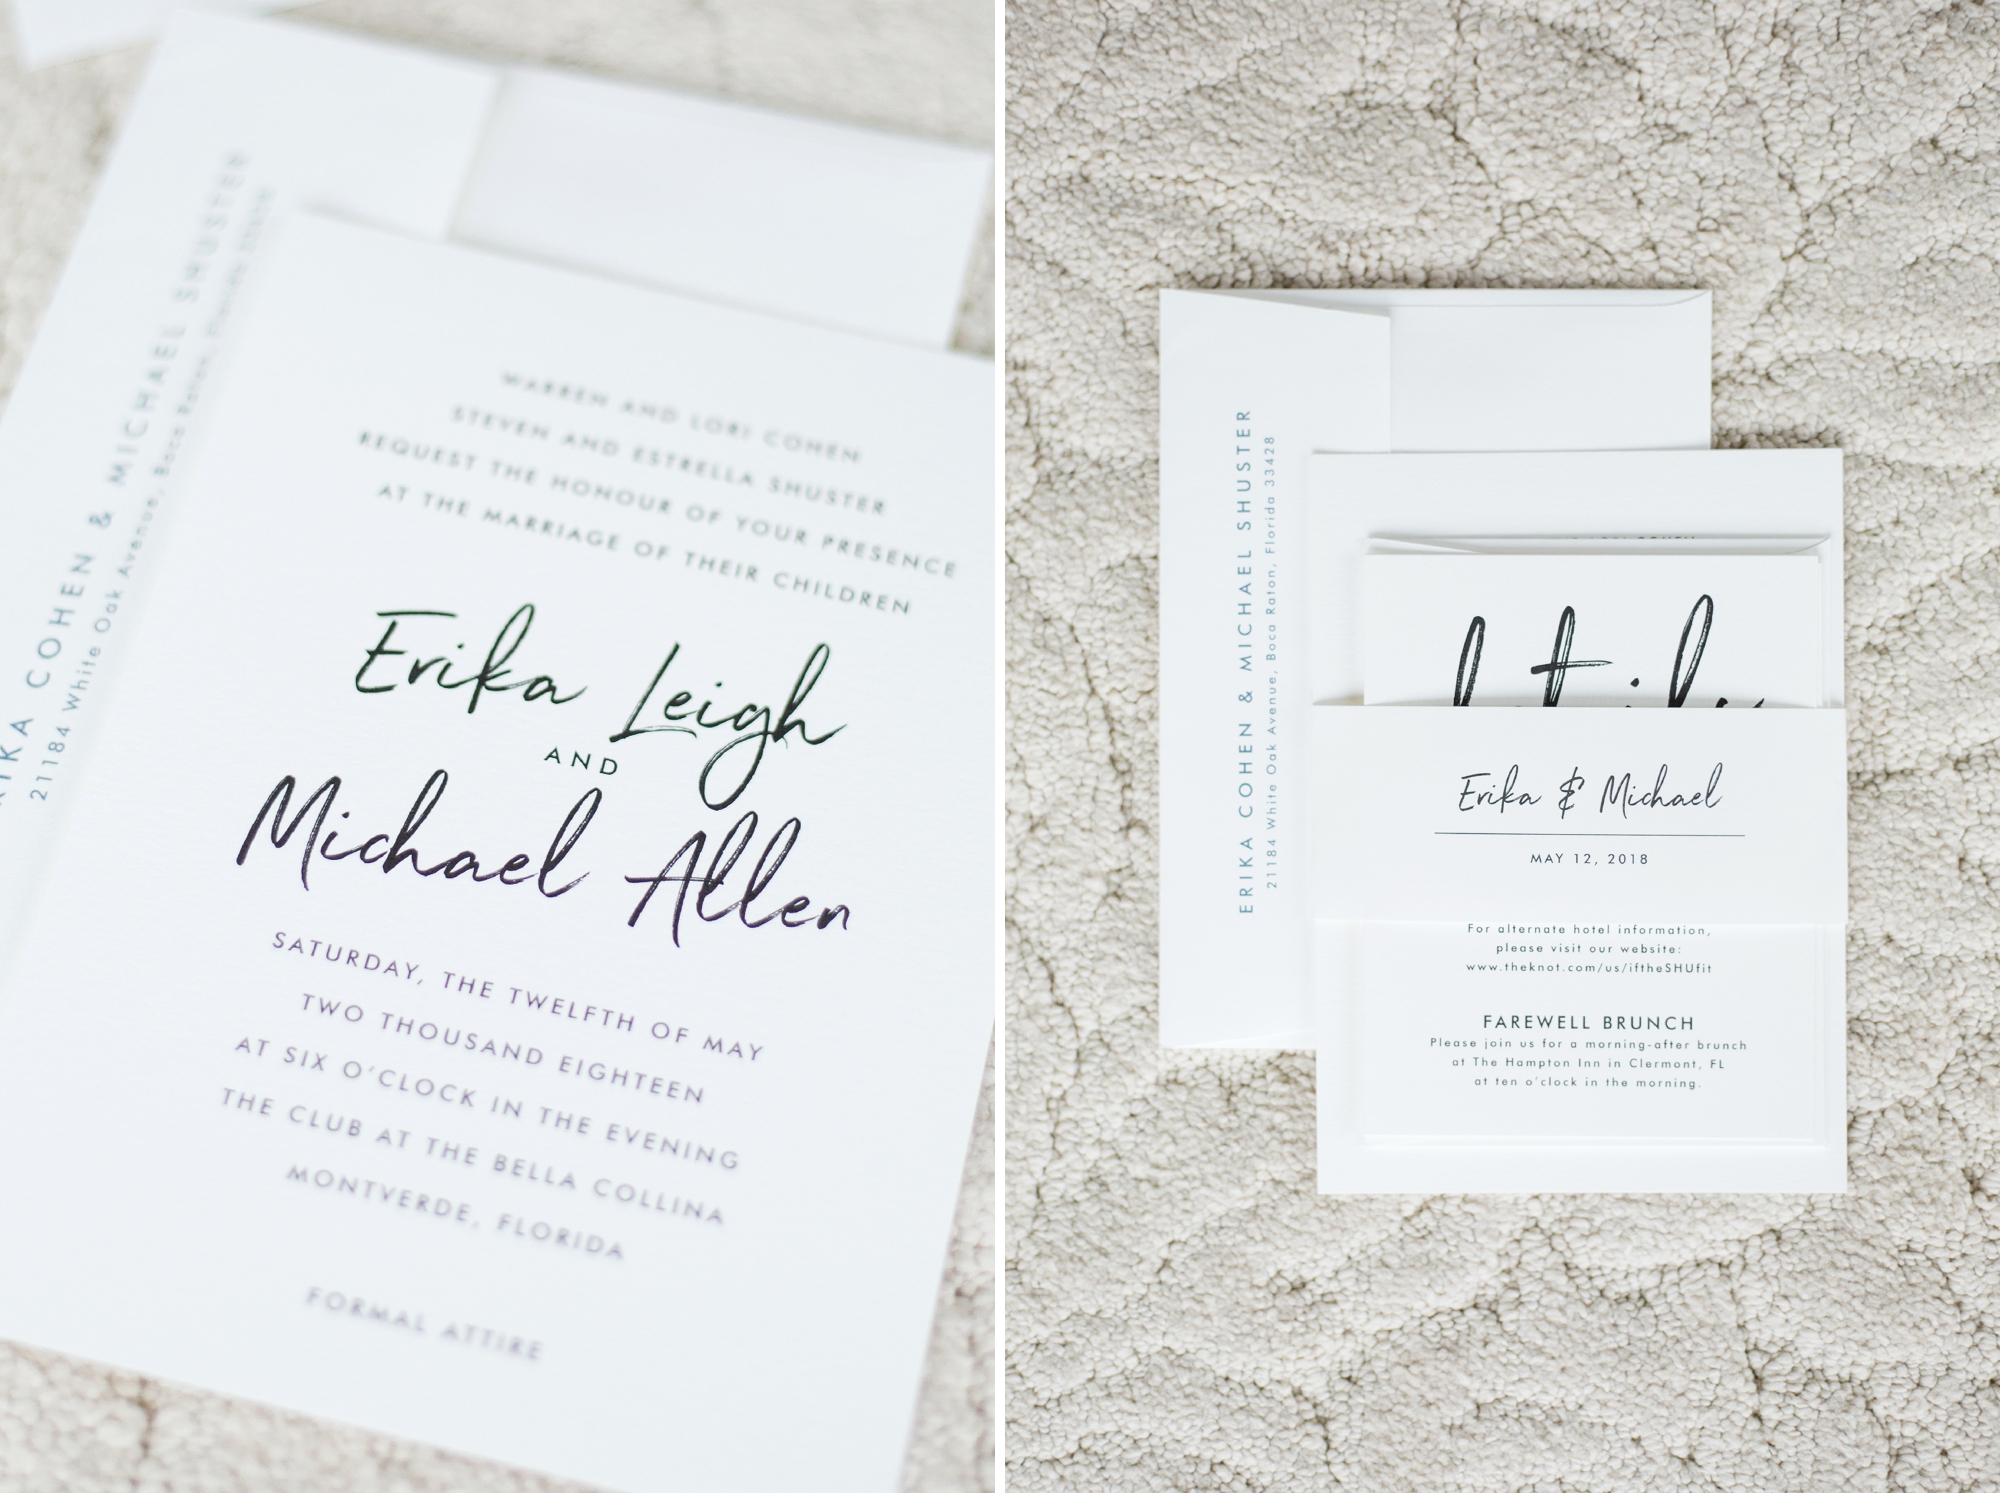 ERIKA COHEN & MICHAEL SHUSTER
21184 White Oak Avenue, Boca Raton, Florida 33428
WARREN AND LORI COHEN
STEVEN AND ESTRELLA SHUSTER
REQUEST THE HONOUR OF YOUR PRESENCE
AT THE MARRIAGE OF THEIR CHILDREN
Erika Leigh
AND
Michael Allen
SATURDAY, THE TWELFTH OF MAY
TWO THOUSAND EIGHTEEN
AT SIX O'CLOCK IN THE EVENING
THE CLUB AT THE BELLA COLLINA
MONTVERDE, FLORIDA
FORMAL ATTIRE
ERIKA COHEN & MICHAEL SHUSTER
21184 White Oak Avenue, Boca Raton, Florida 33428
Erika & Michael
MAY 12, 2018
For alternate hotel information,
please visit our website:
www.theknot.com/us/iftheSHUfit
FAREWELL BRUNCH
Please join us for a morning-after brunch
at The Hampton Inn in Clermont, FL
at ten o'clock in the morning.